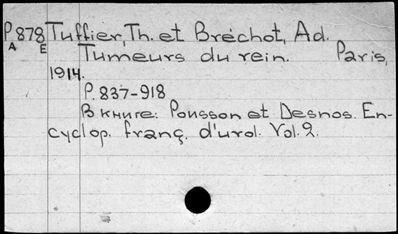 P878 Tuffier, Th. et Bréchot, Ad.
A E Tumeurs du rein. Paris,
1914.
P. 837-918
В книге: Pousson et Desnos. En-
cyclop. franç. d'urol. Vol. 2.